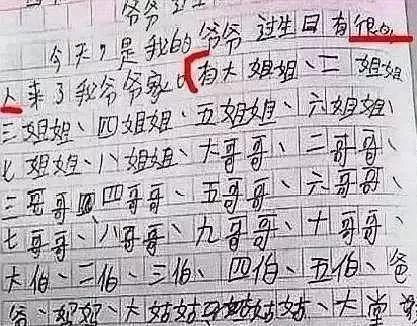 爷爷过生
今天,是我的爷爷过生日有很多
人来了我爷爷家。有大姐姐、二姐姐
三姐姐、四姐姐、五姐姐、六姐姐、
七姐姐、八姐姐、大哥哥、二哥哥、
三哥哥、四哥哥、五哥哥、六哥哥、
七哥哥、八哥哥、九哥哥、十哥哥、
大伯、二伯、三伯、四伯、五伯、爸
爸、妈妈、大姑姑、姑姑、大堂